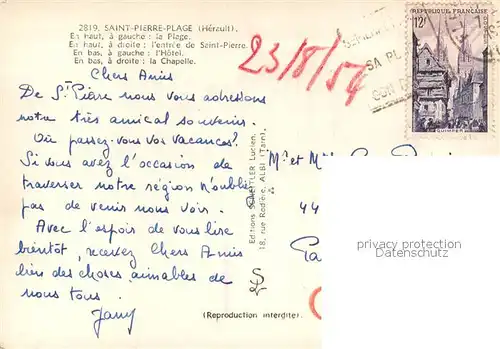 2819. SAINT-PIERRE-PLAGE (Hérault).
En haut, à gauche : la Plage.
En haut, à droite : l'entrée de Saint-Pierre.
En bas, à gauche : l'Hôtel.
En bas, à droite : la Chapelle.
23/8/54
Chers Amis
De St Pierre nous vous adressons
notre très amical souvenir.
Où passez-vous vos vacances?
Si vous avez l'occasion de
traverser notre région n'oubliez
pas de venir nous voir.
Avec l'espoir de vous lire
bientôt, recevez Chers Amis
bien des choses aimables de
nous tous.
Jany
Editions Lucien,
18, rue Rodière, ALBI (Tarn).
(Reproduction interdite).
REPUBLIQUE FRANÇAISE
12F
QUIMPER
SA PL
Mr et Mme
44
privacy protection
Datenschutz